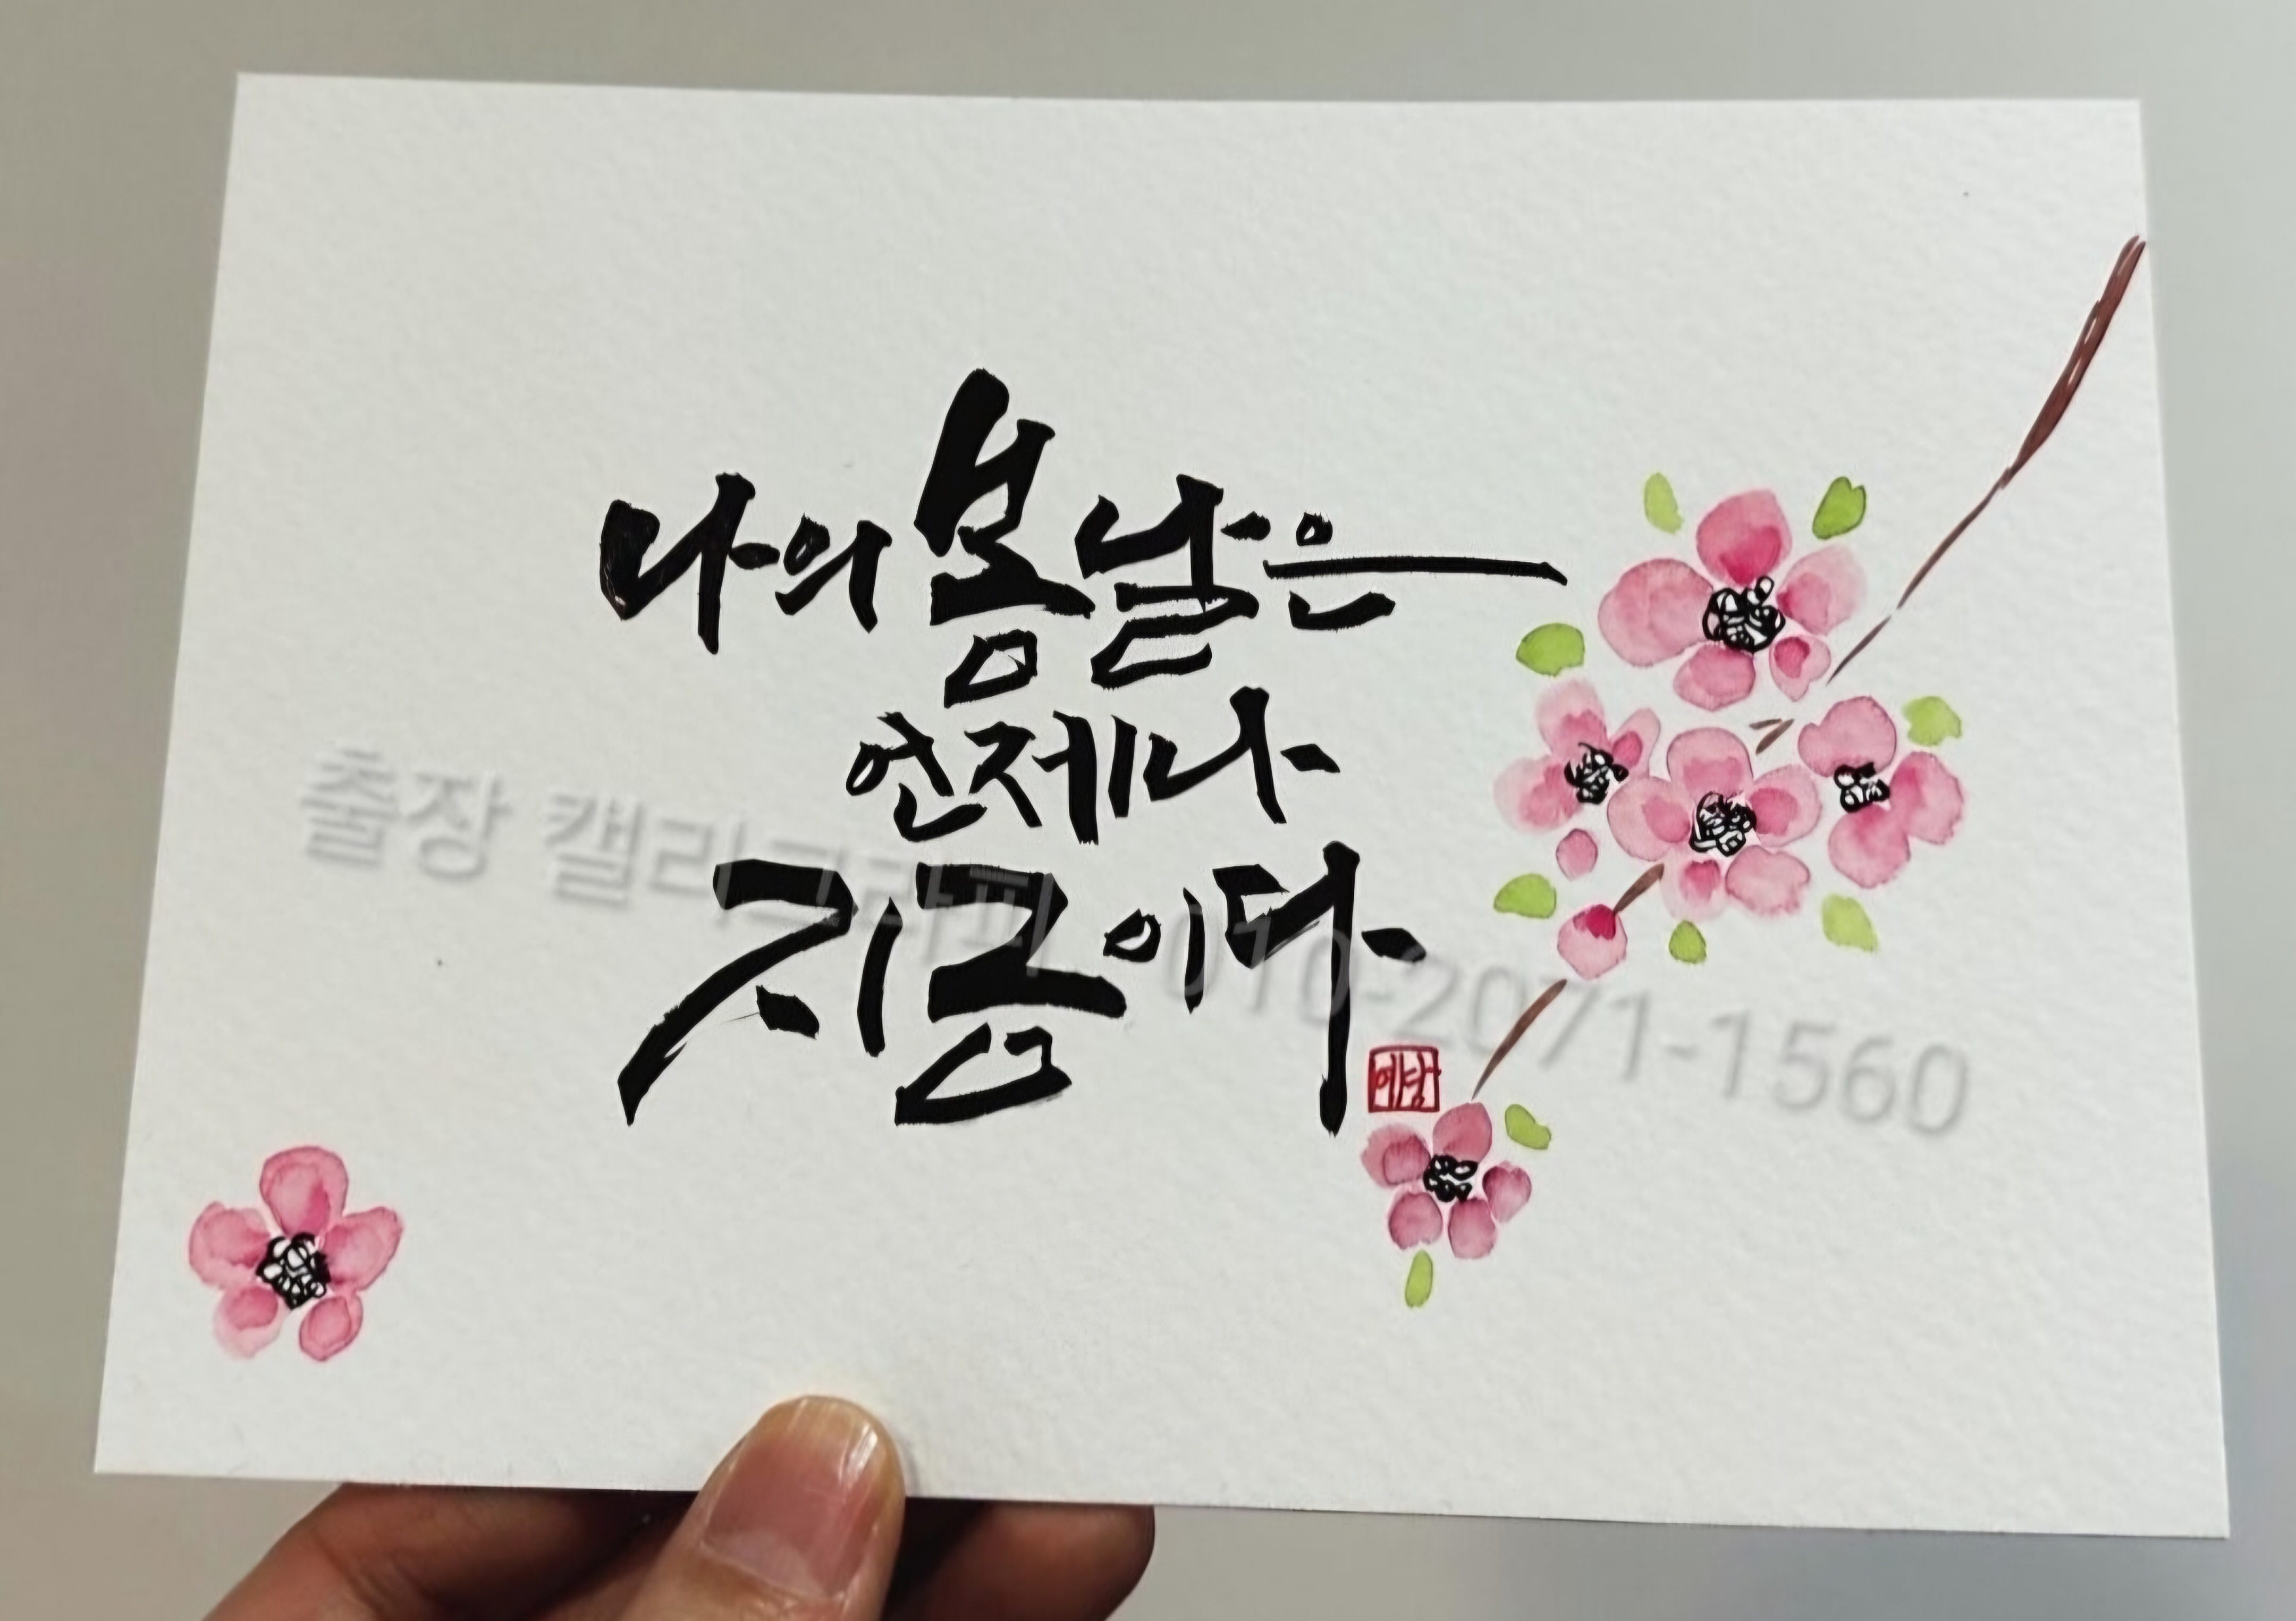 나의 봄날은
언제나
지금이다
출장 캘리그라피 010-2071-1560
예담